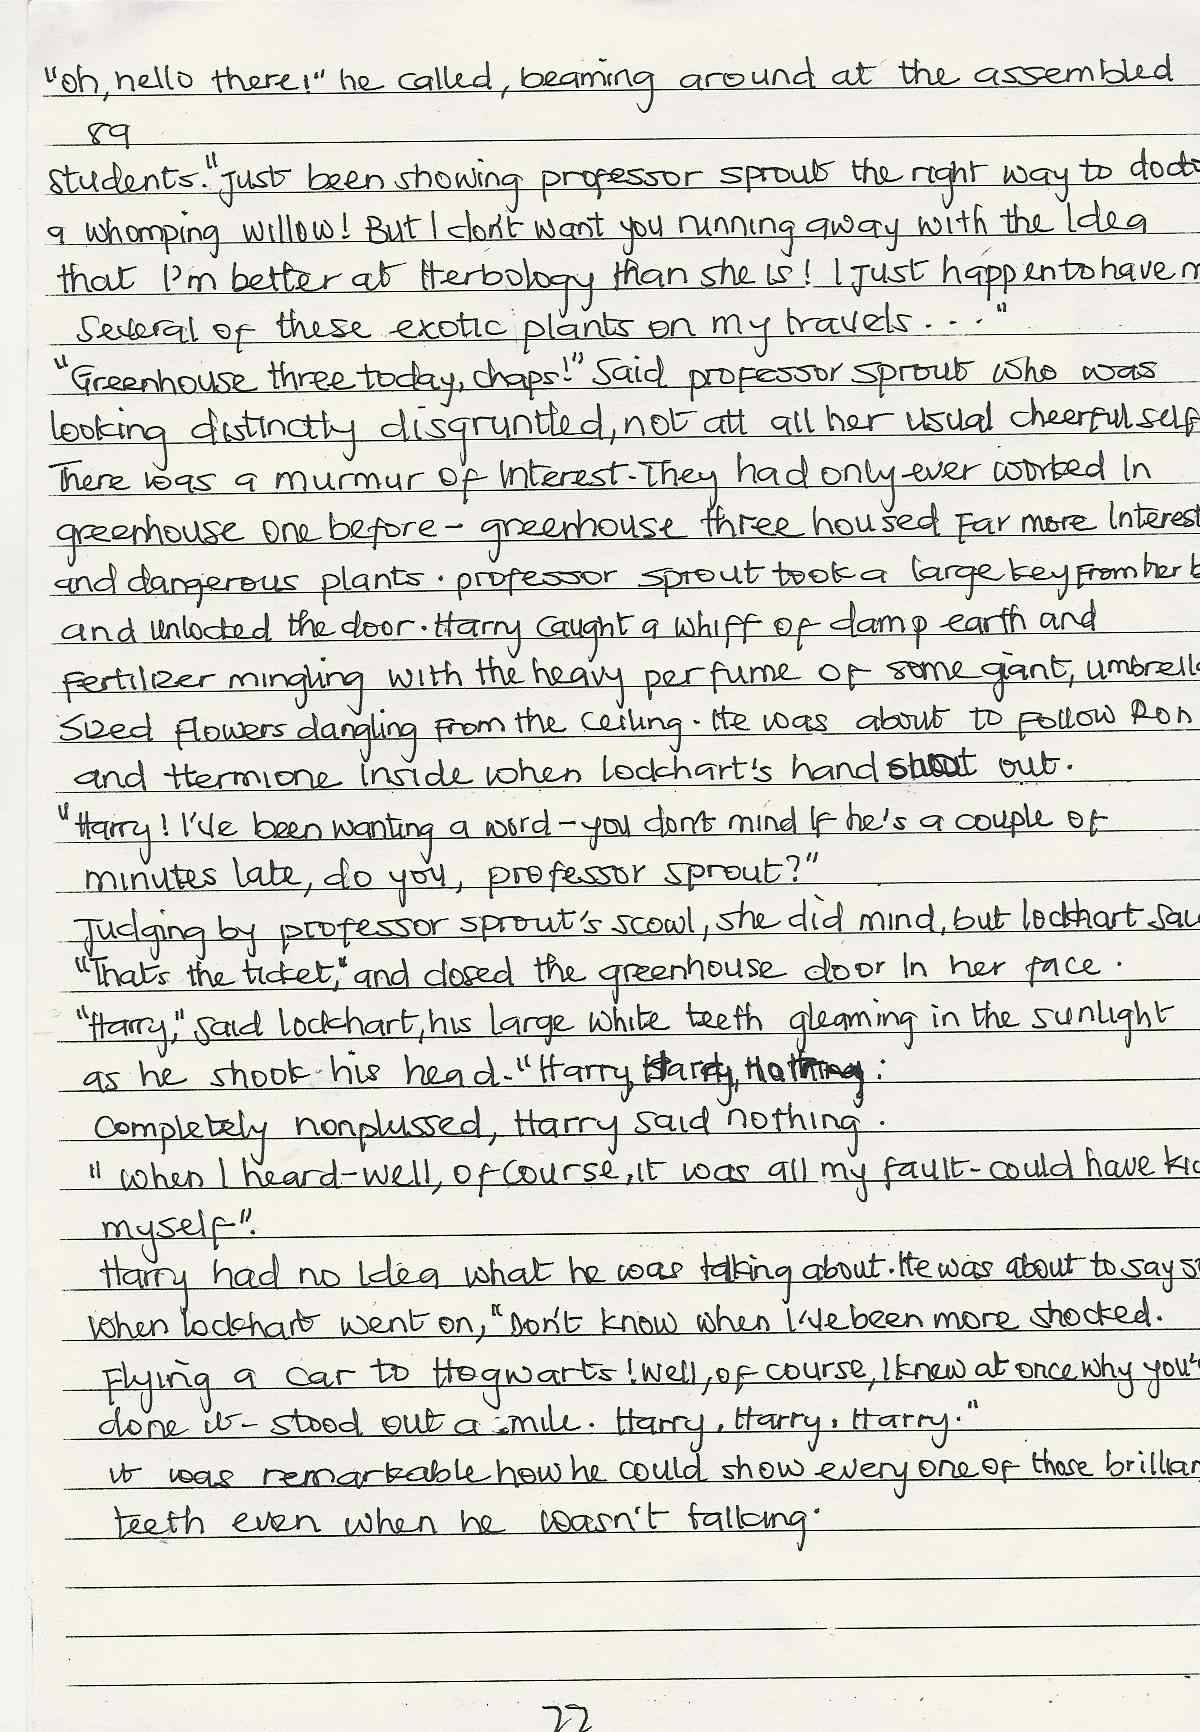 "Oh, hello there!" he called, beaming around at the assembled
89
students. "Just been showing professor sprout the right way to docto
a whomping willow! But I don't want you running away with the Idea
that I'm better at Herbology than she is! I Just happen to have m
Several of these exotic plants on my travels . . . "
"Greenhouse three today, chaps!" Said professor sprout who was
looking distinctly disgruntled, not att all her usual cheerful self
There was a murmur of Interest. They had only ever worked In
greenhouse one before - greenhouse three housed Far more Interest
and dangerous plants. professor sprout took a large key From her b
and unlocked the door. Harry caught a whiff of damp earth and
Fertilizer mingling with the heavy perfume of some giant, umbrella
Sized flowers dangling from the ceiling. He was about to Follow Ron
and Hermione Inside when lockhart's hand shoot out.
"Harry! I've been wanting a word - you don't mind If he's a couple of
minutes late, do you, professor sprout?"
Judging by professor sprout's scowl, she did mind, but lockhart sai
"That's the ticket," and closed the greenhouse door In her face.
"Harry," said lockhart, his large white teeth gleaming in the sunlight
as he shook his head. "Harry, Harry, Nothing.
Completely nonplussed, Harry said nothing.
"When I heard - well, of course, it was all my fault - could have kic
myself".
Harry had no Idea what he was talking about. He was about to say s
When lockhart went on, "Don't know when I've been more shocked.
Flying a car to Hogwarts! Well, of course, I knew at once why you'
done it - stood out a mile. Harry, Harry, Harry."
it was remarkable how he could show every one of those brillian
teeth even when he wasn't talking.
22